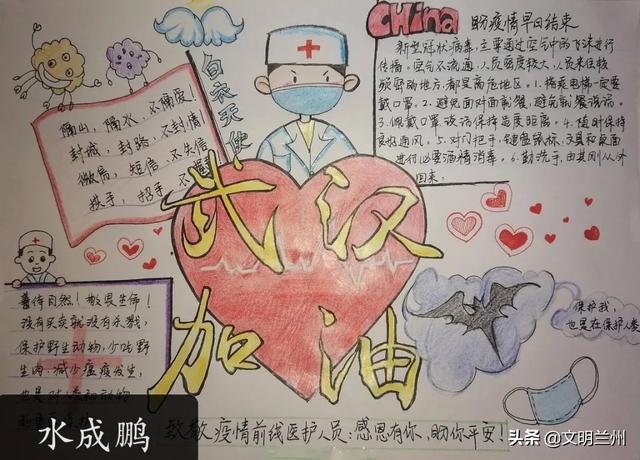 China 盼疫情早日结束
新型冠状病毒,主要通过空气中的飞沫进行
传播。空气不流通,人员密度较大,人员来往较
频繁的地方,都是高危地区。1.搭乘电梯一定要
戴口罩。2.避免面对面就餐,避免就餐说话。
3.佩戴口罩说话保持适度距离。4.随时保持
良好通风。5.对门把手,键盘鼠标,文具和桌面
进行必要酒精消毒。6.勤洗手,尤其刚从外
回来。
白衣天使
隔山,隔水,不隔爱!
封城,封路,不封情
微信,短信,不失信
武汉
加油
善待自然!敬畏生命!
没有买卖就没有杀戮,
保护野生动物,少吃野
生肉,减少瘟疫发生,
保护我,
也是在保护人类
致敬疫情前线医护人员:感恩有你,盼你平安!
水成鹏
头条 @文明兰州